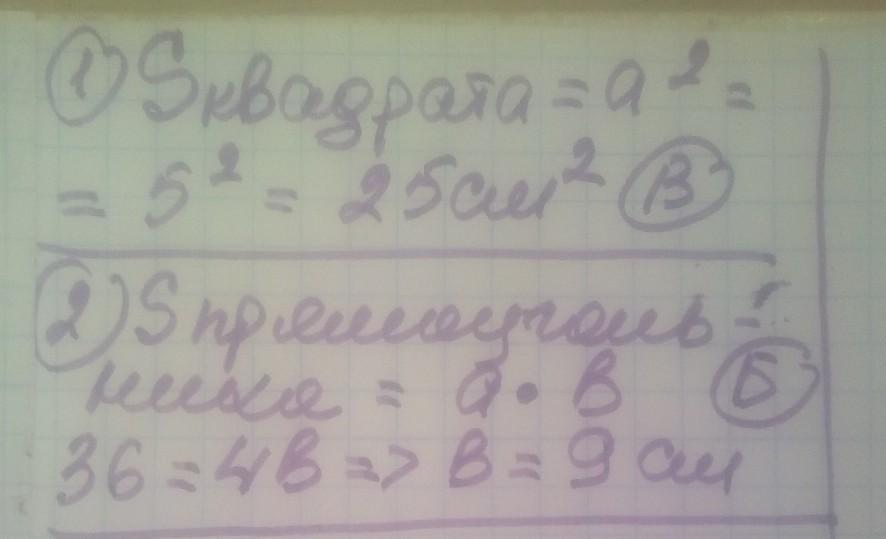 1) Sквадрата = a² =
= 5² = 25см² В
2) Sпрямоуголь-
ника = a • в Б
36 = 4в => в = 9 см